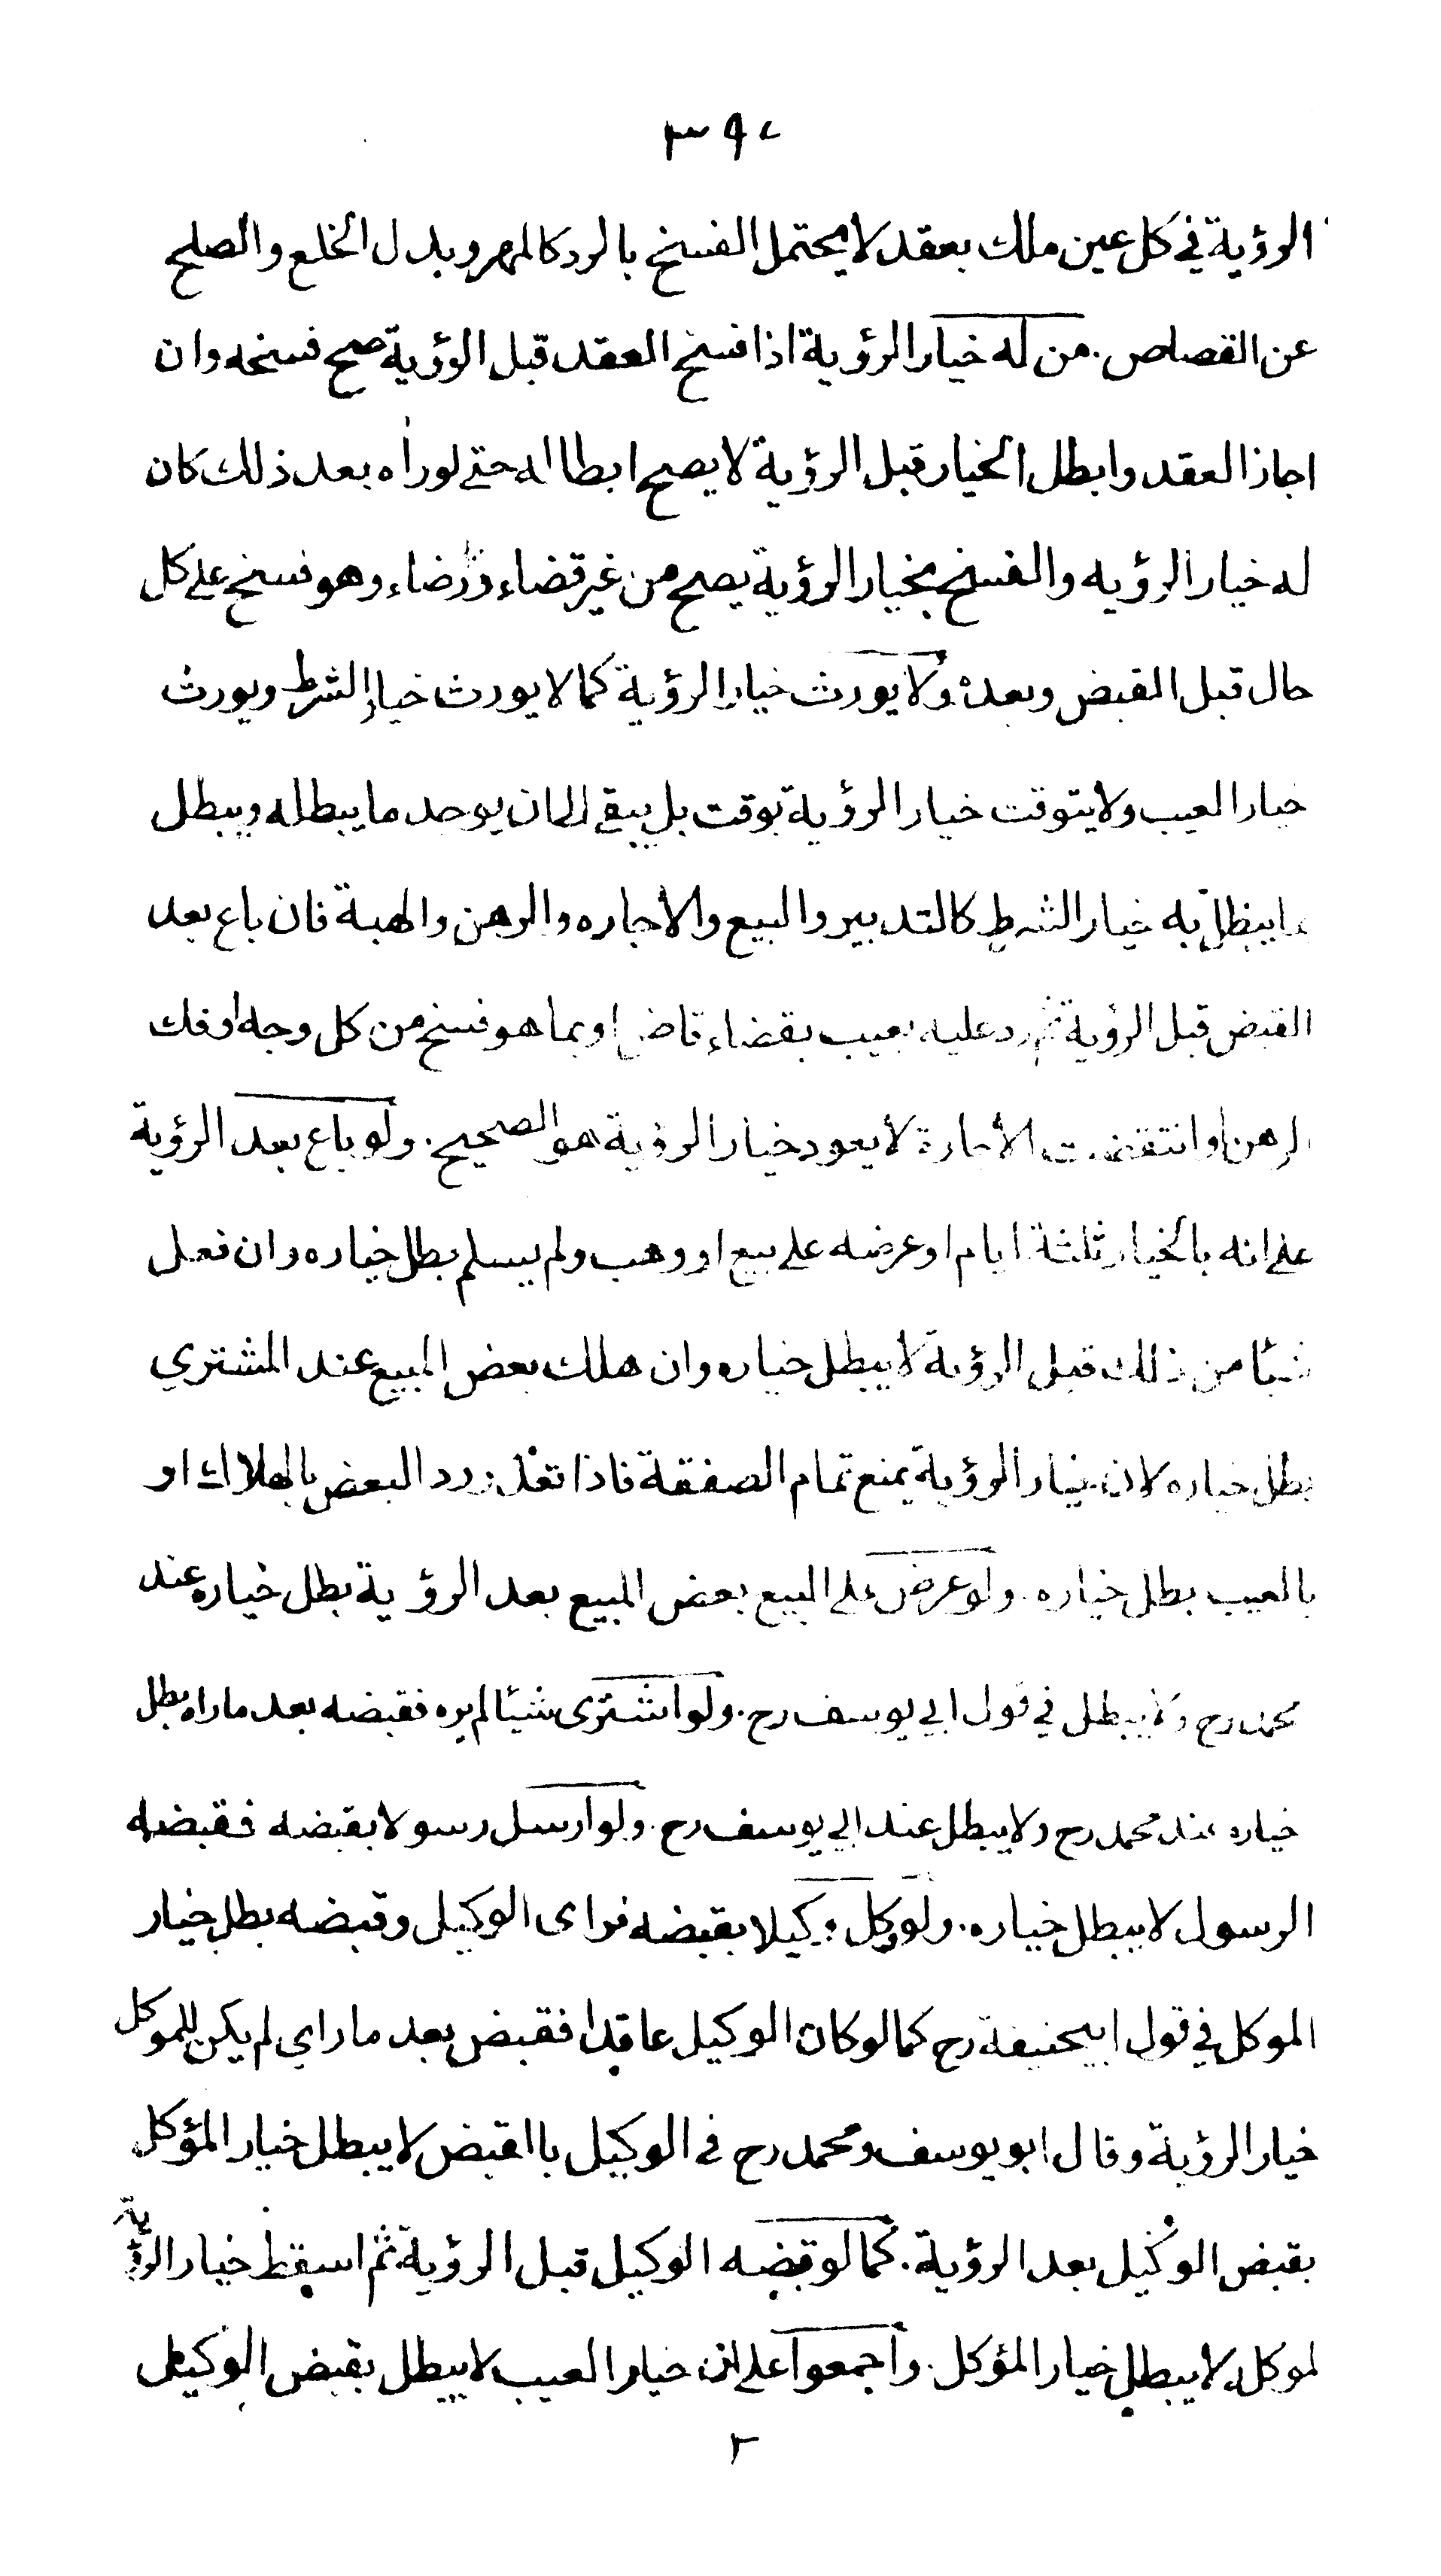 الرؤية في كل عين ملك بعقد لا يحتمل الفسخ بالرد كالمهر وبدل الخلع والصلح
عن القصاص. من له خيار الرؤية اذا فسخ العقد قبل الرؤية صح فسخه وان
اجاز العقد وابطل الخيار قبل الرؤية لا يصح ابطاله حتى لو راه بعد ذلك كان
له خيار الرؤيه والفسخ بخيار الرؤية يصح من غير قضاء ورضاء وهو فسخ على كل
حال قبل القبض وبعده ولا يورث خيار الرؤية كما لا يورث خيار الشرط ويورث
خيار العيب ولا يتوقت خيار الرؤية بوقت بل يبقى الى ان يوجد ما يبطله ويبطل
ما يبطل به خيار الشرط كالتدبير والبيع والاجاره والرهن والهبة فان باع بعد
القبض قبل الرؤية ثم رد عليه بعيب بقضاء قاض او بما هو فسخ من كل وجه او فك
الرهن او انتقضت الأجارة لا يعود خيار الرؤية هو الصحيح. ولو باع بعد الرؤية
على انه بالخيار ثلثة ايام او عرضه على بيع او وهب ولم يسلم بطل خياره وان فعل
شيئا من ذلك قبل الرؤية لا يبطل خياره وان هلك بعض المبيع عند المشتري
بطل خياره لان خيار الرؤية يمنع تمام الصفقة فاذا تعذر رد البعض بالهلاك او
بالعيب بطل خياره. ولو عرض على البيع بعض المبيع بعد الرؤية بطل خياره عند
محمد رح ولا يبطل في قول ابي يوسف رح. ولو اشترى شيئا لم يره فقبضه بعد ما راه بطل
خياره عند محمد رح ولا يبطل عند ابي يوسف رح. ولو ارسل رسولا بقبضه فقبضه
الرسول لا يبطل خياره. ولو وكل وكيلا بقبضه فراى الوكيل وقبضه بطل خيار
الموكل في قول ابيحنيفة رح كما لو كان الوكيل عاقدا فقبض بعد ما راي لم يكن للموكل
خيار الرؤية وقال ابو يوسف ومحمد رح في الوكيل باالقبض لا يبطل خيار المؤكل
بقبض الوكيل بعد الرؤية. كما لو قبضه الوكيل قبل الرؤية ثم اسقط خيار الرؤية
لموكله لا يبطل خيار المؤكل. واجمعوا على ان خيار العيب لا يبطل بقبض الوكيل
٢